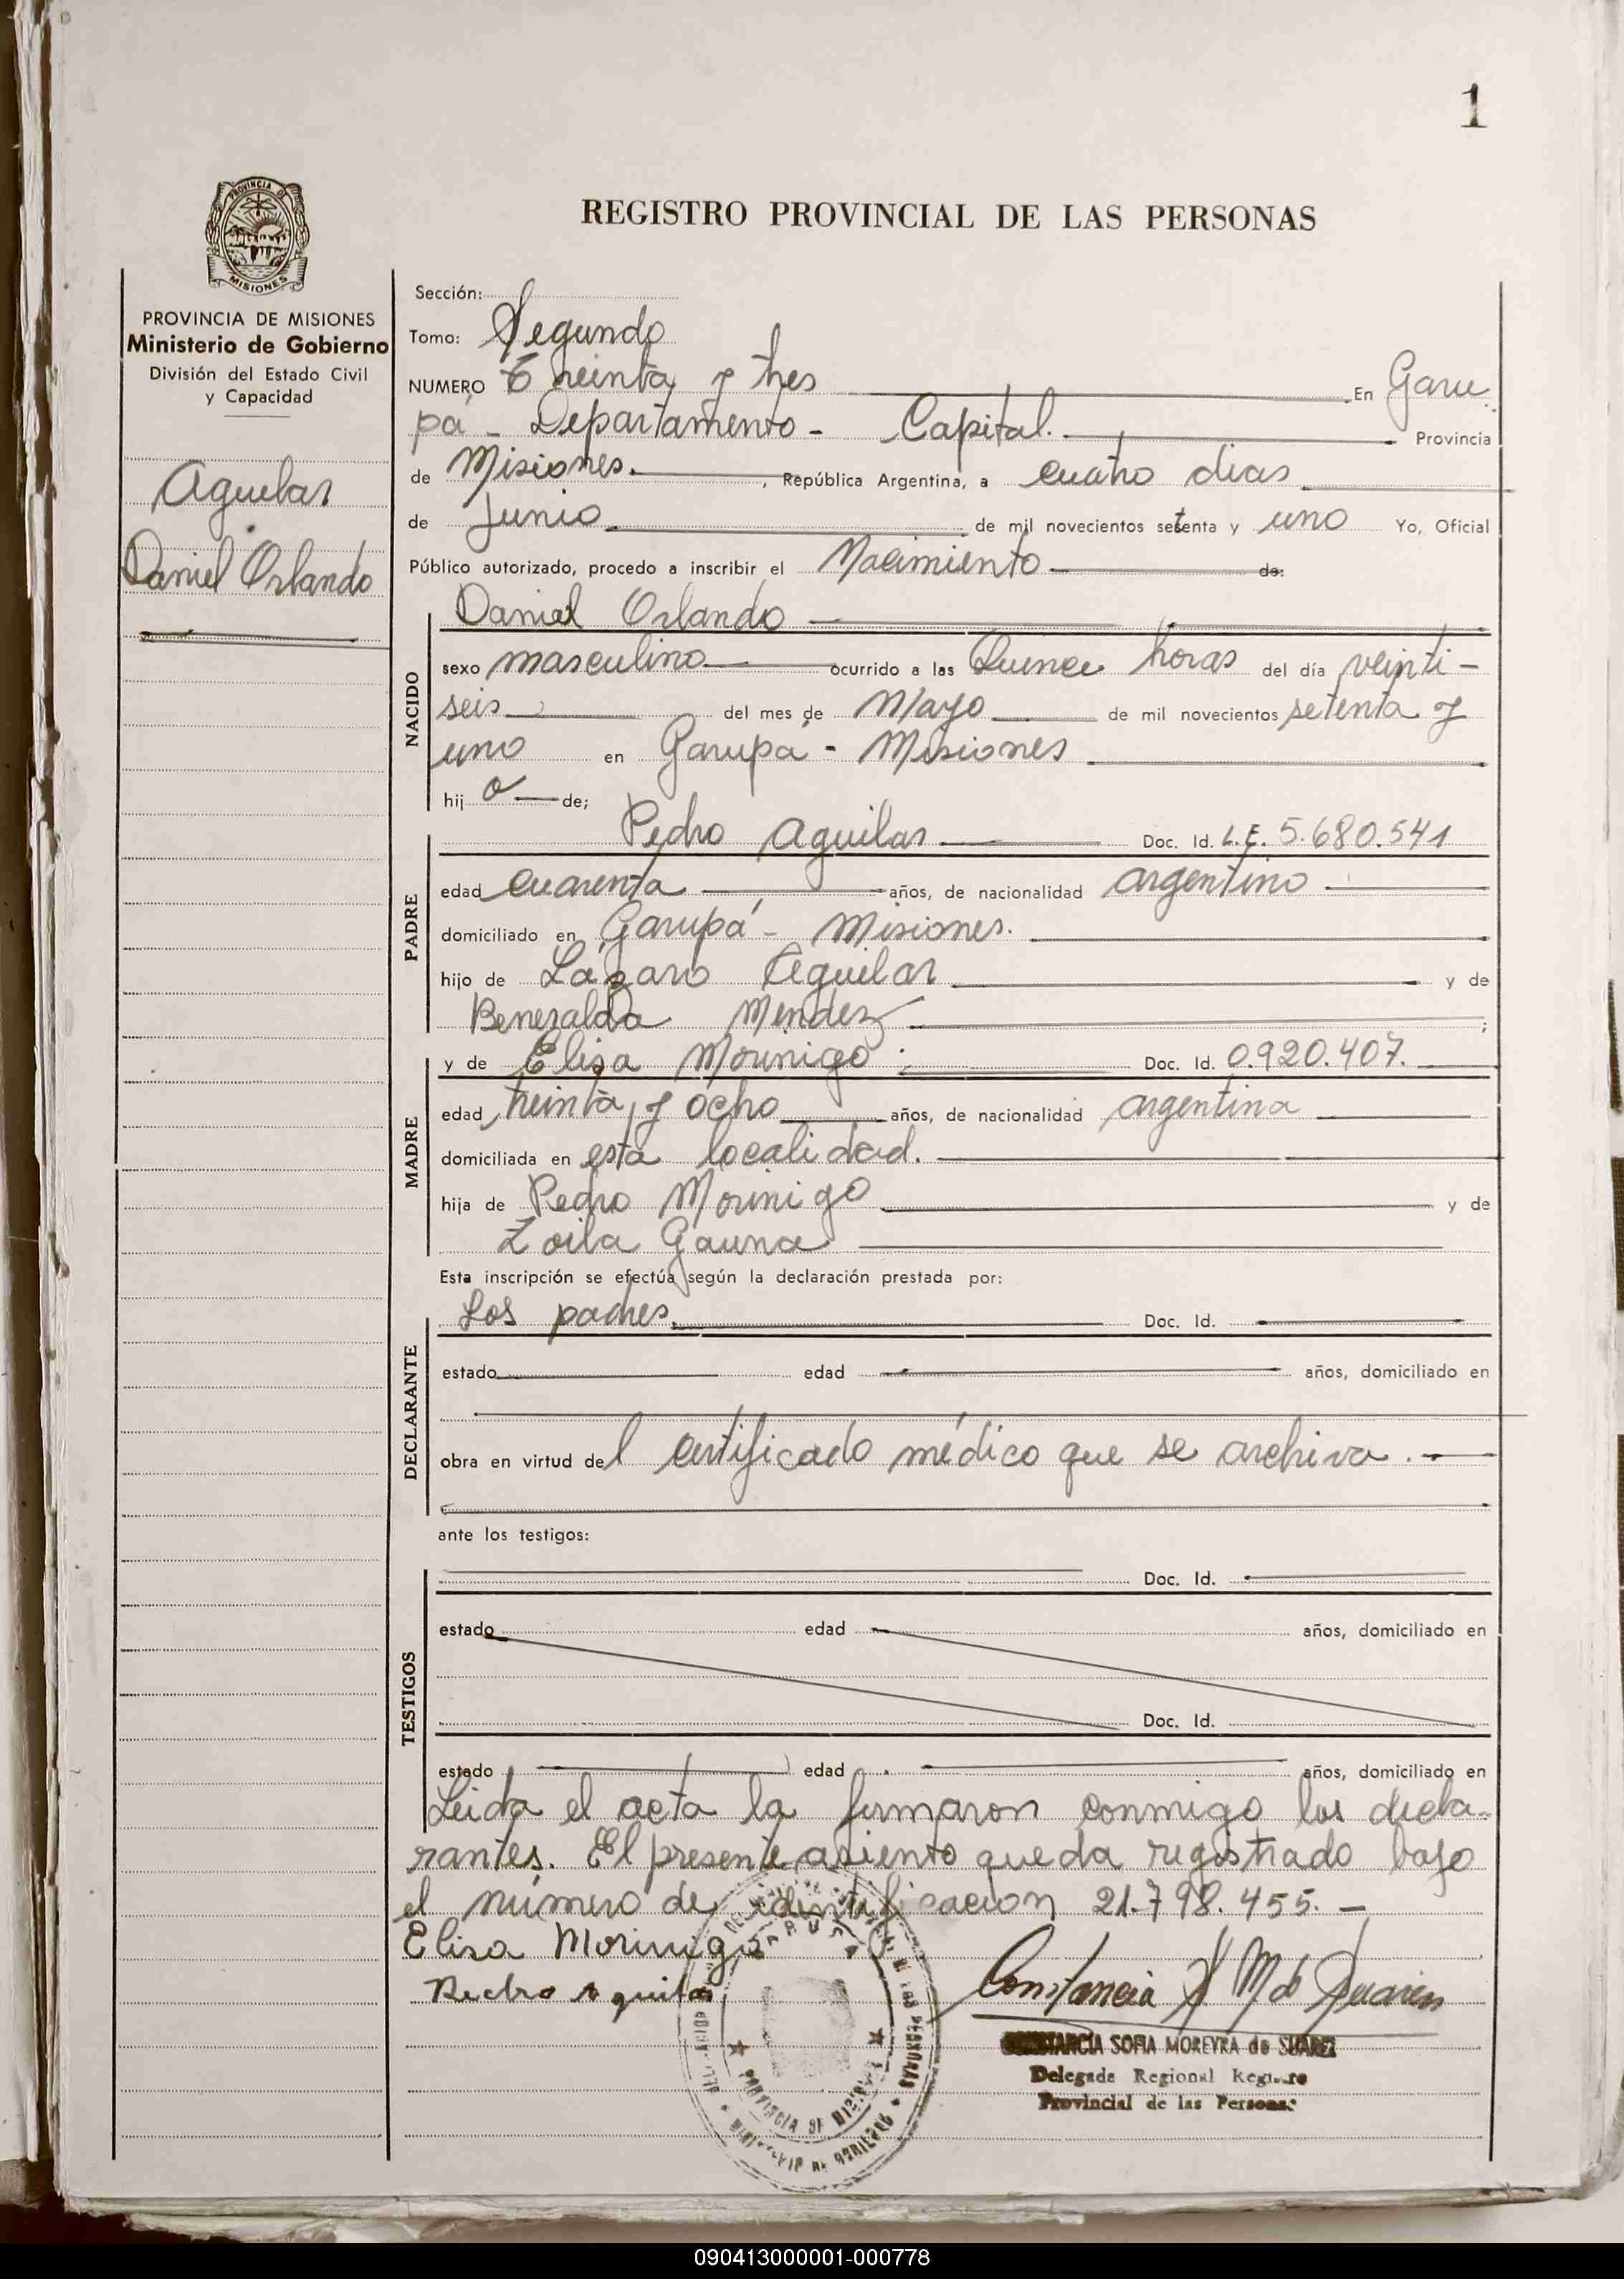 1
REGISTRO PROVINCIAL DE LAS PERSONAS
PROVINCIA DE MISIONES
Ministerio de Gobierno
División del Estado Civil
y Capacidad
Aguilar
Daniel Orlando
Sección:
Tomo: Segundo
NUMERO Treinta y tres En Garu
pá - Departamento - Capital. Provincia
de Misiones. , República Argentina, a cuatro dias
de Junio de mil novecientos setenta y uno Yo, Oficial
Público autorizado, procedo a inscribir el Nacimiento de:
Daniel Orlando
NACIDO
sexo masculino ocurrido a las Quince horas del día veinti-
seis del mes de Mayo de mil novecientos setenta y
uno en Garupá - Misiones
hij o de;
Pedro Aguilar Doc. Id. L.E. 5.680.541
PADRE
edad cuarenta años, de nacionalidad argentino
domiciliado en Garupá - Misiones.
hijo de Lázaro Aguilar y de
Benezalda Mendez ;
y de Elisa Morinigo Doc. Id. 0.920.407.
MADRE
edad treinta y ocho años, de nacionalidad argentina
domiciliada en esta localidad.
hija de Pedro Morinigo y de
Zoila Gauna
Esta inscripción se efectúa según la declaración prestada por:
Los padres. Doc. Id.
DECLARANTE
estado edad años, domiciliado en
obra en virtud del certificado médico que se archiva.
ante los testigos:
Doc. Id.
TESTIGOS
estado edad años, domiciliado en
Doc. Id.
estado edad años, domiciliado en
Leida el acta la firmaron conmigo los decla-
rantes. El presente asiento queda registrado bajo
el número de identificacion 21.798.455.-
Elisa Morinigo
Pedro Aguilar
CONSTANCIA SOFIA MOREYRA de SUAREZ
Delegada Regional Registro
Provincial de las Personas
PROVINCIA DE MISIONES
MINISTERIO DE GOBIERNO
090413000001-000778